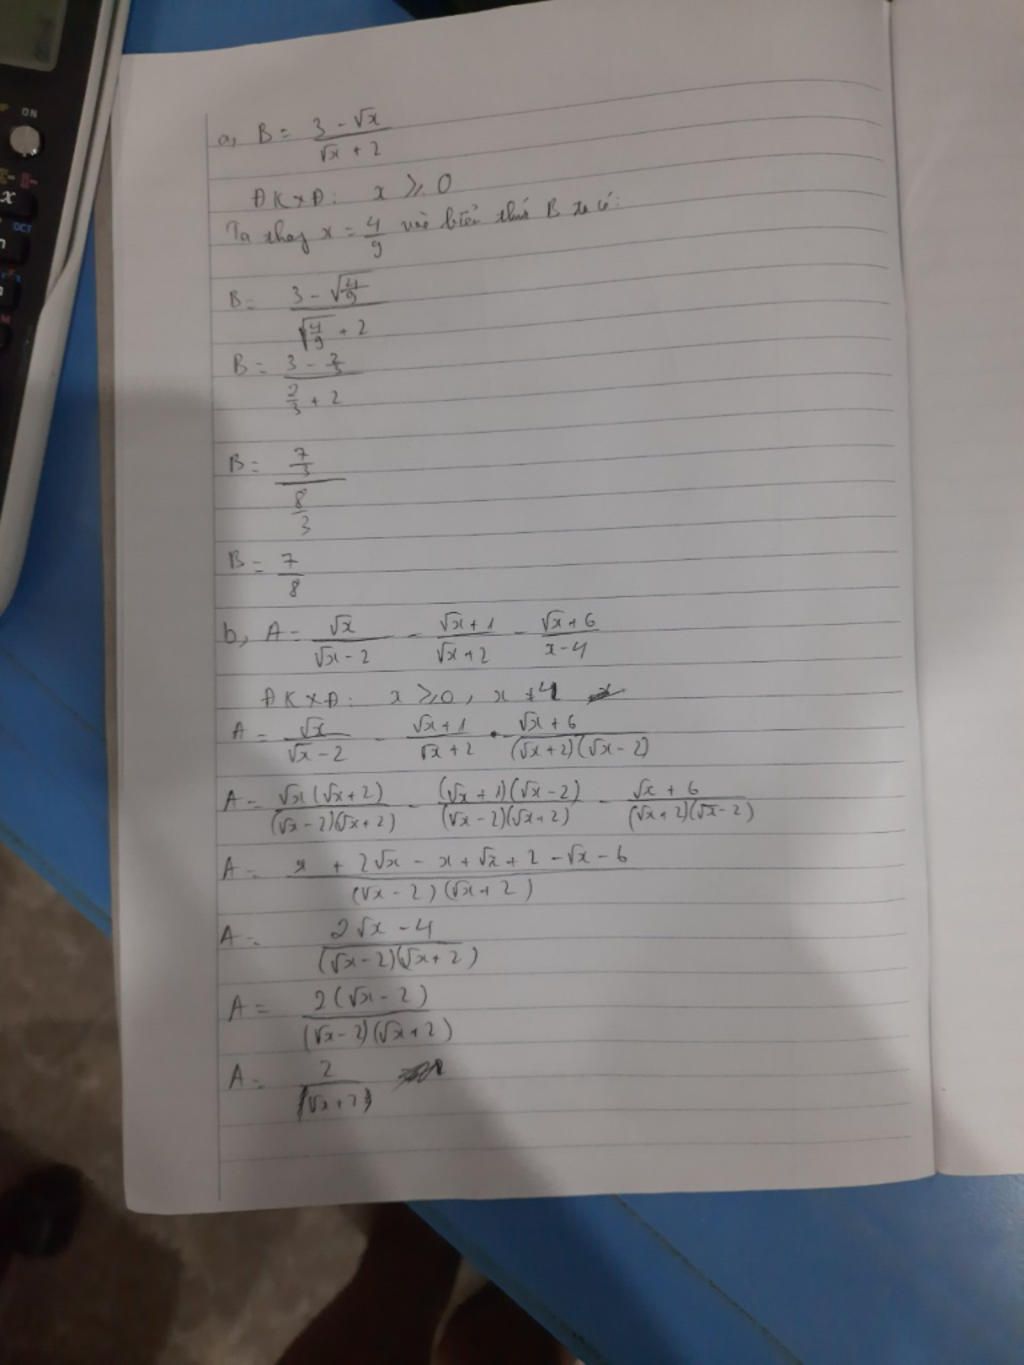 ON
DCT
M
a, B = (3 - √x)/(√x + 2)
ĐKXĐ: x ≥ 0
Ta thay x = 4/9 vào biểu thức B ta có:
B = (3 - √(4/9))/(√(4/9) + 2)
B = (3 - 2/3)/(2/3 + 2)
B = (7/3)/(8/3)
B = 7/8
b, A = √x/(√x - 2) - (√x + 1)/(√x + 2) - (√x + 6)/(x - 4)
ĐKXĐ: x ≥ 0, x ≠ 4
A = √x/(√x - 2) - (√x + 1)/(√x + 2) - (√x + 6)/((√x + 2)(√x - 2))
A = √x(√x + 2)/((√x - 2)(√x + 2)) - (√x + 1)(√x - 2)/((√x - 2)(√x + 2)) - (√x + 6)/((√x + 2)(√x - 2))
A = (x + 2√x - x + √x + 2 - √x - 6)/((√x - 2)(√x + 2))
A = (2√x - 4)/((√x - 2)(√x + 2))
A = 2(√x - 2)/((√x - 2)(√x + 2))
A = 2/(√x + 2)